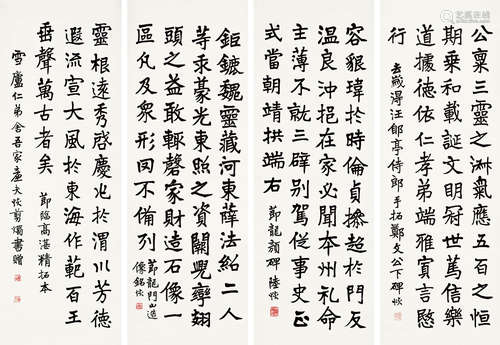 公稟三靈應五百之恒
期乗和載誕文明冠世篤信樂
道據德依仁孝弟端
行
去歲得汪郋亭侍郎手拓鄭文公下碑恢
容貌瑋於時倫貞摻超於門友
溫良沖挹在家必聞本州
主薄不就三辟別駕從事史正
式當朝靖拱端右
節龍顏碑陸恢
鉅鏕魏靈藏河東薛法紹二人
等求豪光東照之資闕兜率翅
頭之益敢輒磬家財造石像一
區凡及眾形罔不備列
節龍門山造
像銘恢
靈根遠秀啓慶兆於渭川芳德
遐流宣大風於東海作範百王
垂聲萬古者矣
節臨高湛精拓本
雪廬仁弟舍吾家廉夫恢剪燭書贈